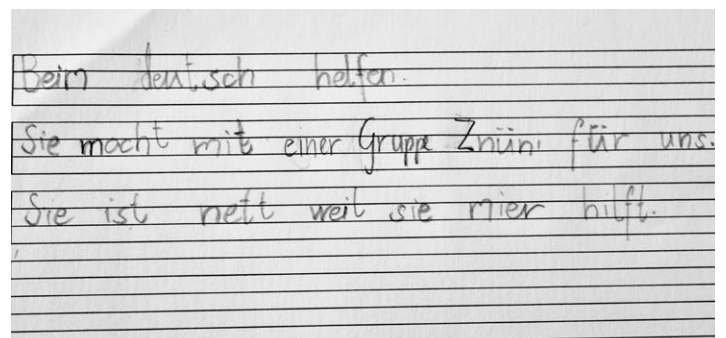 Beim deutsch helfen.
Sie macht mit einer Gruppe Znüni für uns.
Sie ist nett weil sie mier hilft.